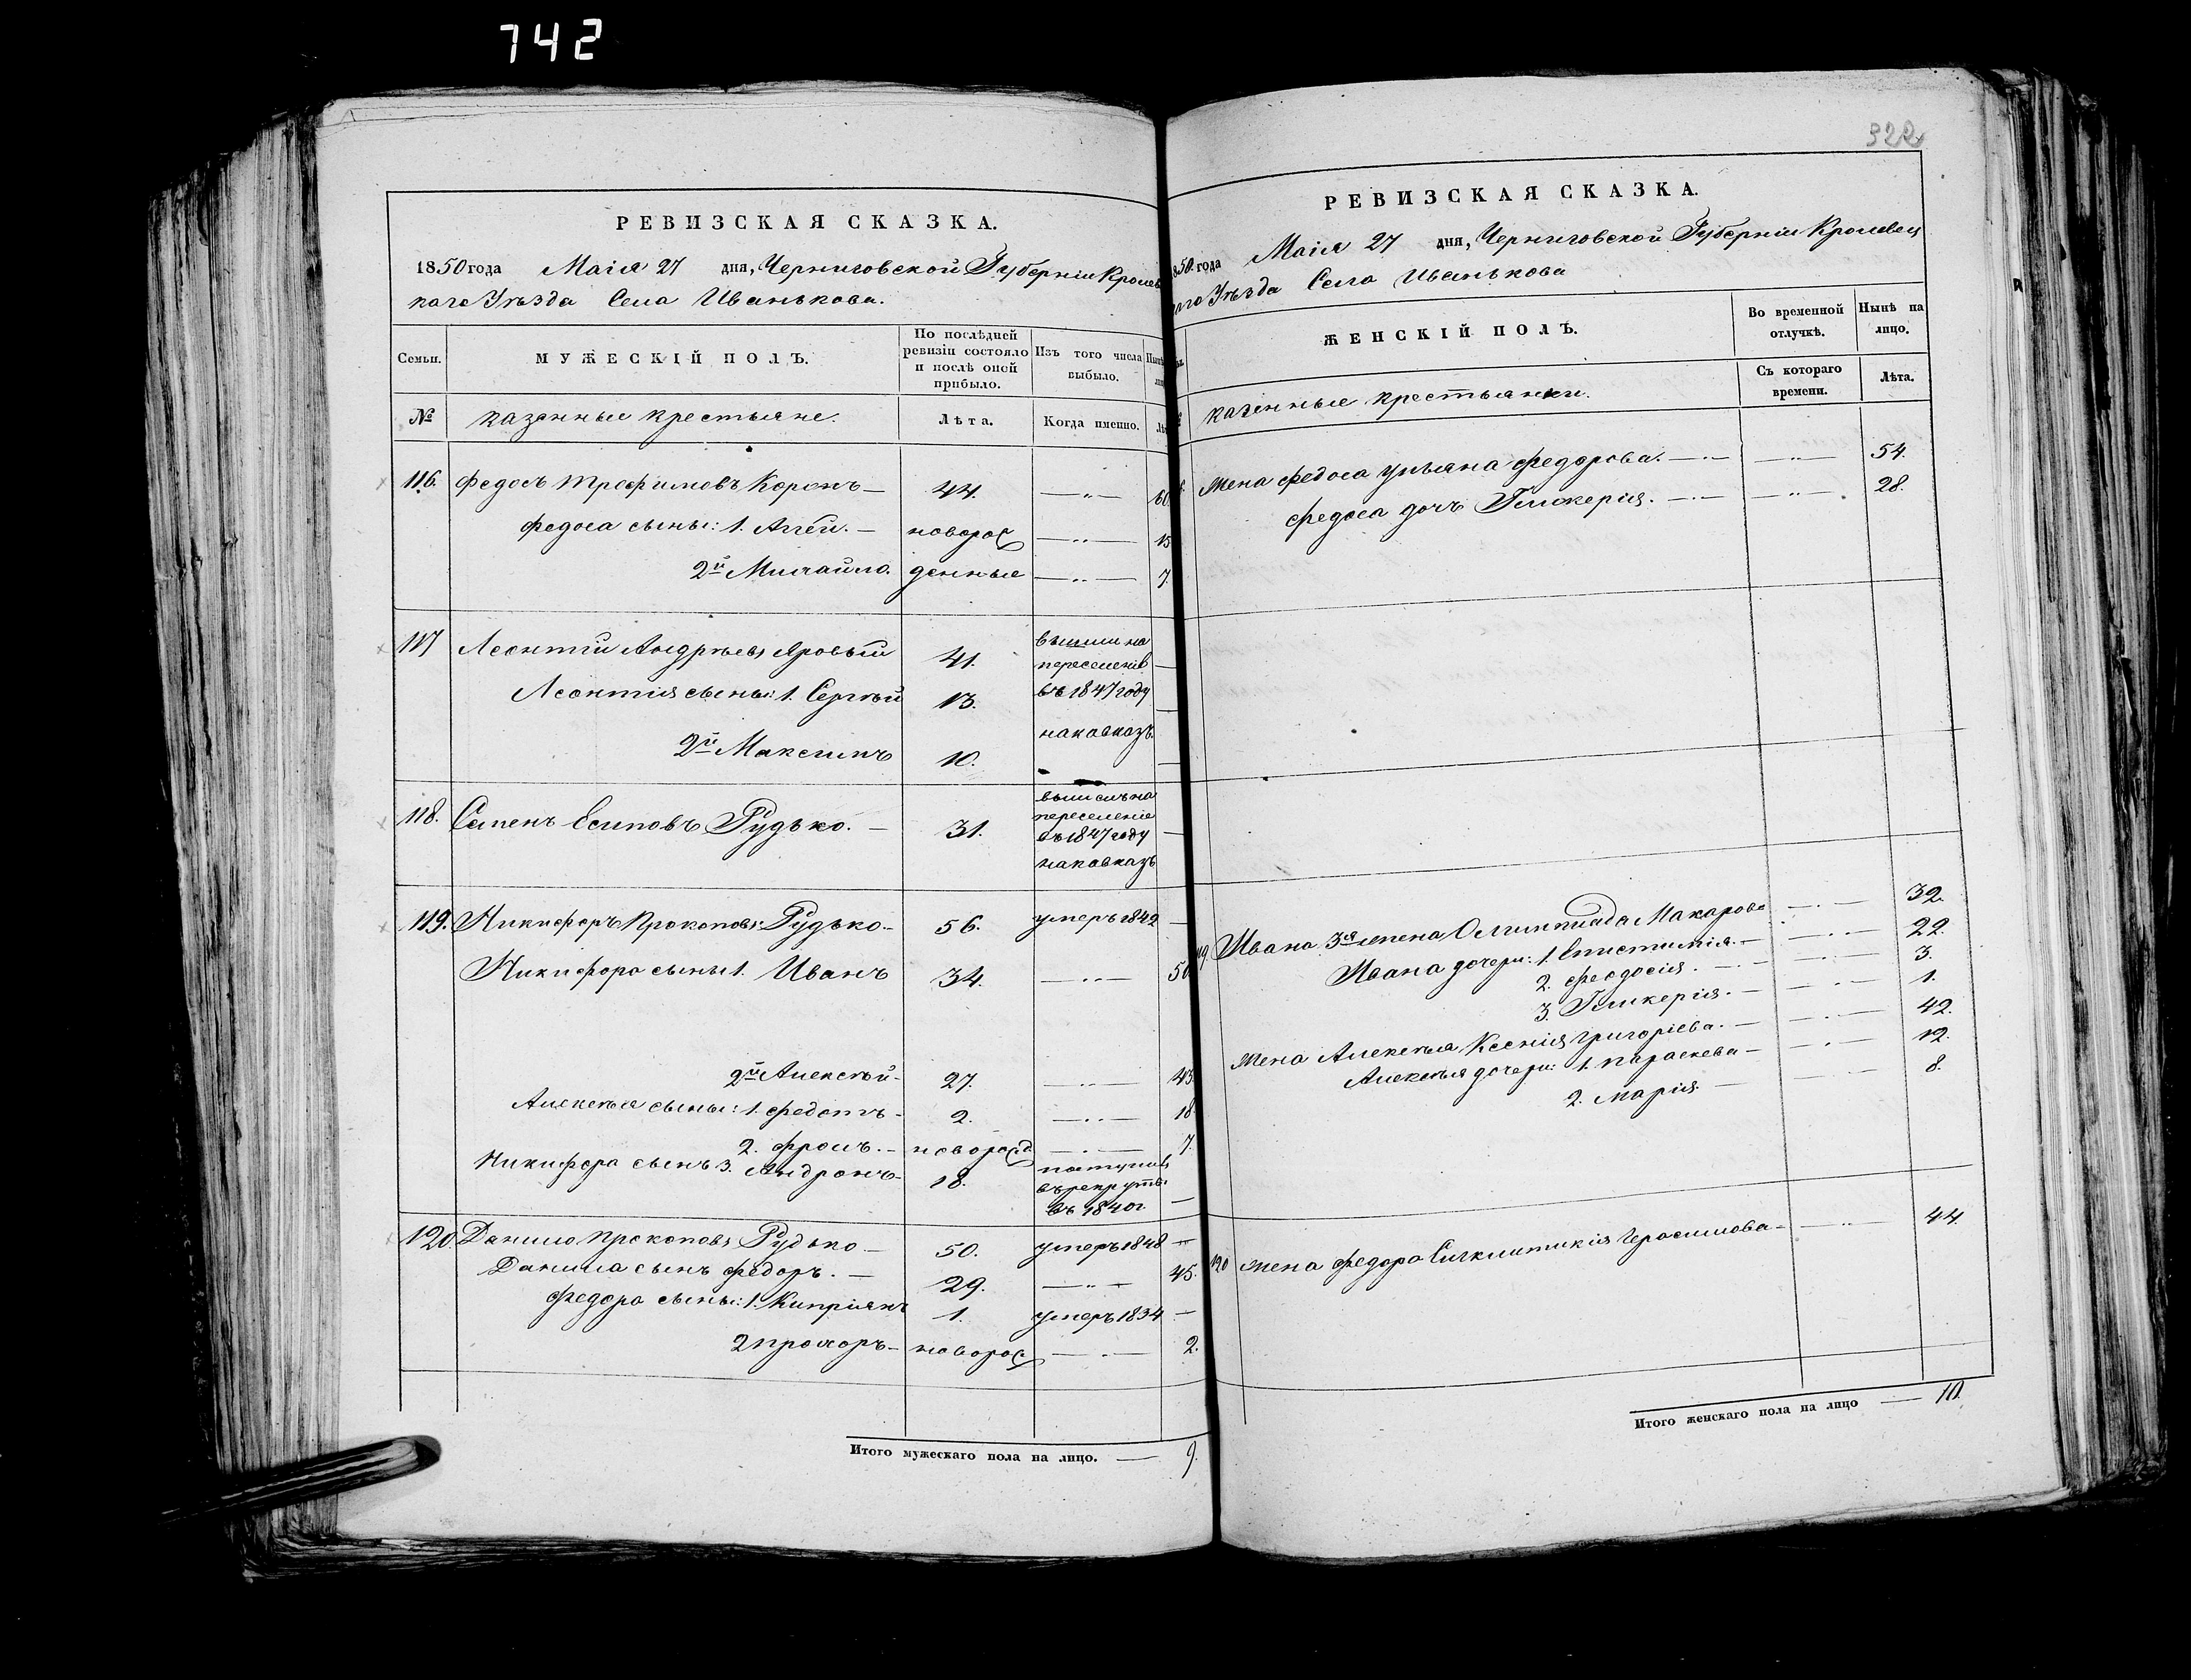 742
РЕВИЗСКАЯ СКАЗКА.
1850 года Маія 27 дня, Черниговской Губерніи Кролев
каго Уѣзда Села Иванькова.
Семьи.
МУЖЕСКІЙ ПОЛЪ.
По послѣдней
ревизіи состояло
и послѣ оной
прибыло.
Изъ того числа
выбыло.
№
казенные крестьяне.
Лѣта.
Когда именно.
116. Федосъ Трофимовъ Коронъ — 44. — 60.
Федоса сыны: 1. Агей. — новорож 15
2й Михайло. денные — 7.
117 Леонтій Андрѣевъ Яровый 41.
вышли на
переселеніе
въ 1847 году
на кавказъ.
Леонтія сыны: 1. Сергѣй 13.
2й Максимъ 10.
118. Семенъ Есиповъ Рудько. — 31.
вышелъ на
переселеніе
въ 1847 году
на кавказъ
119. Никифоръ Прокоповъ Рудько. — 56. умеръ 1842 —
Никифора сыны 1. Иванъ 34. — 50
2й Алексѣй — 27. — 43.
Алексѣя сыны: 1. Федотъ — 2. — 18.
2. Фролъ. — новорожд — 7.
Никифора сынъ 3. Андронъ — 18.
поступилъ
въ рекруты
въ 1840г. —
120. Данило Прокоповъ Рудько — 50. умеръ 1848 —
Данила сынъ Федоръ. — 29. — 45.
Федора сыны: 1. Кипріянъ 1. умеръ 1834 —
2 Прохоръ — новорож — 2.
Итого мужескаго пола на лицо. — 9.
322
РЕВИЗСКАЯ СКАЗКА.
850. года Маія 27 дня, Черниговской Губерніи Кролевец
каго Уѣзда Села Иванькова
ЖЕНСКІЙ ПОЛЪ.
Во временной
отлучкѣ.
Нынѣ на
лицо.
Съ котораго
времени.
Лѣта.
казенные крестьянки.
Жена Федоса Ульяна Федорова. — 54.
Федоса дочь Гликерія. — 28.
119 Ивана 3я жена Олимпіада Макарова 32.
Ивана дочери: 1. Епистимія. — 22.
2. Феодосія. — 3.
3. Гликерія. — 1.
Жена Алексѣя Ксенія Григоріева. — 42.
Алексѣя дочери: 1. Параскева — 12.
2. Марія. — 8.
120 Жена Федора Синклитикія Герасимова — 44.
Итого женскаго пола на лицо — 10.